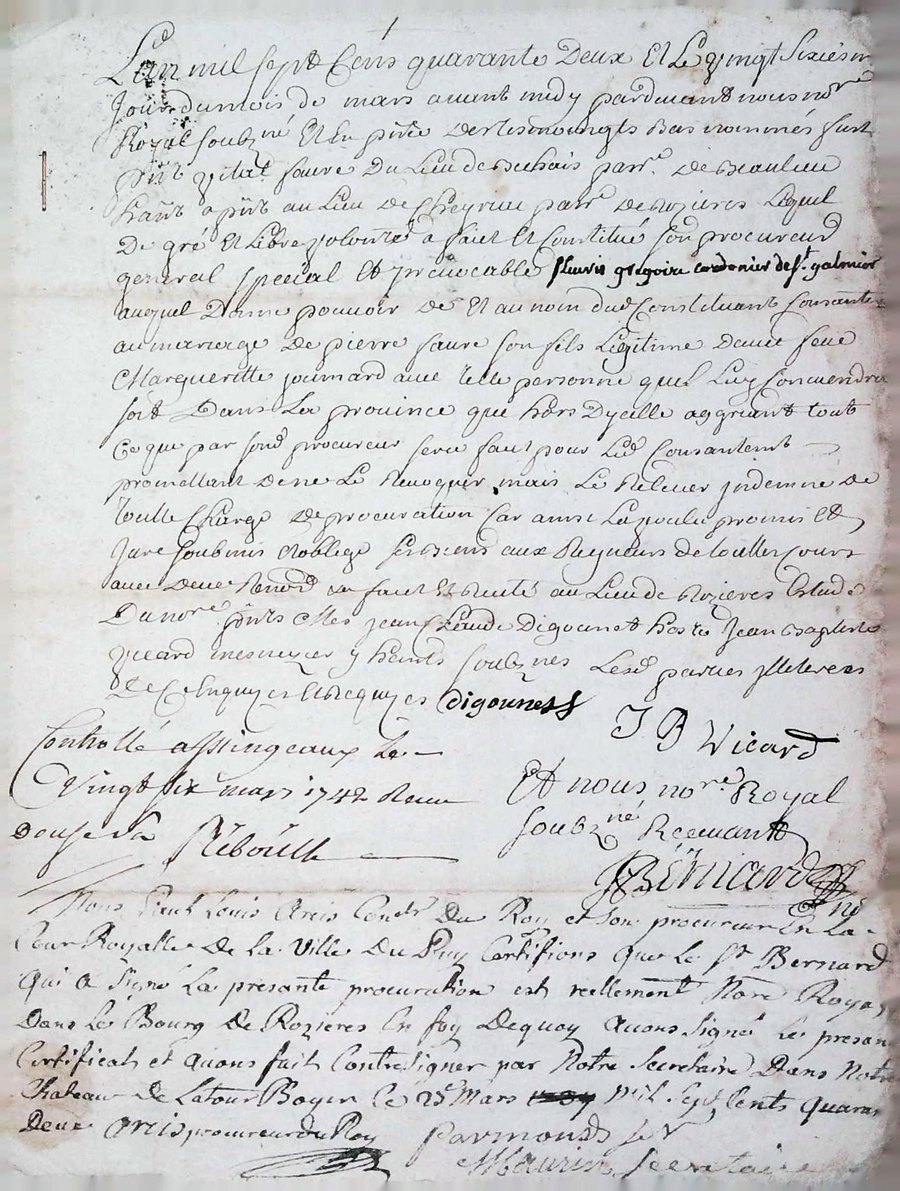 L'an mil sept Cens quarante Deux Et Le vingt Sixiem
Jour du mois de mars avant midy pardevant nous nore
Royal soubzné Et En pnce des tesmoingts bas nommés fust
pnt vital faure Du Lieu de parr. de Beaulieu
hant a pnt au Lieu De Cheyrac parr. de Rozieres Lequel
De gré Et Libre volonté a faict Et Constitué son procureur
general special Et jrrevocable fleuris gregoire cordonier de st. galmier
auquel Donne pouvoir de Et au nom dud Constituant Consentir
au mariage De pierre faure son fils Legitime De feue
Margueritte journard avec telle personne quil Luy Conviendra
soit Dans La province que hors Dycelle aggreant tout
Ce que par sond procureur sera fait pour Led Consantemt
promettant de ne Le Revoquer mais Le Relever jndemne de
toutte Charge de procuration Car ainsi La voulu promis Et
juré soubmis Et obligé ses biens aux Rigueurs de touttes Cours
avec Deue Renond fait Et Recité au Lieu de Rozieres Estude
Du nore pnts Mes jean Claude Digounet hoste Jean Baptiste
vicard y hants soubznes Lesd parties jlleterées
de Ce Enquizes Et Requizes Digonnet
J B Vicard
Controllé a Issingeaux Le
Vingt six mars 1742 Receu
Douse s. Riboulle
Et nous nore Royal
soubzné Recevant
Bernard né
Nous Louis Arcis Conser Du Roy et son procureur En La
Cour Royalle De La Ville Du Puy Certifions Que Le Sr Bernard
Qui a Signé La presante procuration est reellement Nore Royal
Dans Le Bourg De Rozieres En foy Dequoy avons Signé Le presan
Certificat et avons fait Contresigner par Notre Secretaire Dans Notre
Chateau De Latour Boyer Ce 29e Mars Mil Sept Cents quaran
Deux Arcis procureur du Roy Par mond Sr
Maurin Secretaire